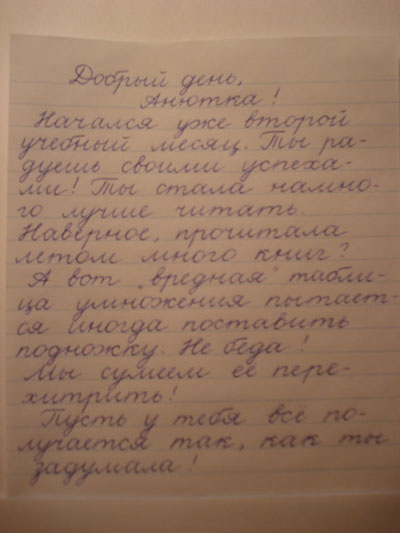 Добрый день,
Анютка!
Начался уже второй
учебный месяц. Ты ра-
дуешь своими успеха-
ми! Ты стала намно-
го лучше читать.
Наверное, прочитала
летом много книг?
А вот „вредная" табли-
ца умножения пытает-
ся иногда поставить
подножку. Не беда!
Мы сумеем её пере-
хитрить!
Пусть у тебя всё по-
лучается так, как ты
задумала!